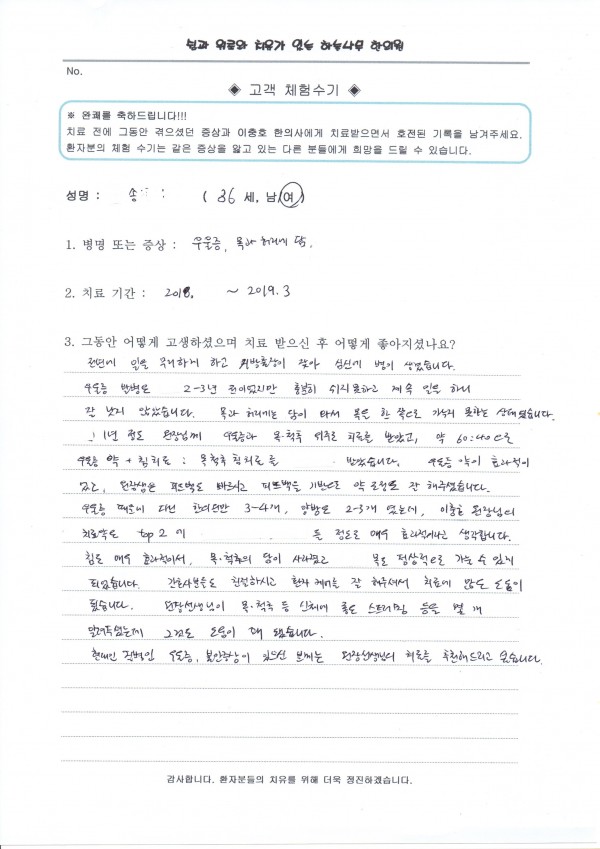 쉼과 위로와 치유가 있는 하늘나무 한의원
No.
◈ 고객 체험수기 ◈
※ 완쾌를 축하드립니다!!!
치료 전에 그동안 겪으셨던 증상과 이충호 한의사에게 치료받으면서 호전된 기록을 남겨주세요.
환자분의 체험 수기는 같은 증상을 앓고 있는 다른 분들에게 희망을 드릴 수 있습니다.
성명 : 송 ( 36 세, 남, 여 )
1. 병명 또는 증상 : 우울증, 목과 허리에 담.
2. 치료 기간 : 2018. ~ 2019. 3
3. 그동안 어떻게 고생하셨으며 치료 받으신 후 어떻게 좋아지셨나요?
전년에 일을 무리하게 하고 지방출장이 잦아 심신에 병이 생겼습니다.
우울증 발병은 2-3년 전이었지만 충분히 쉬지 못하고 계속 일을 하니
잘 낫지 않았습니다. 목과 허리에는 담이 와서 목을 한 쪽으로 가누지 못하는 상태였습니다.
1년 정도 원장님께 우울증과 목·척추 위주로 치료를 받았고, 약 60:40으로
우울증 약 + 침치료 : 목척추 침치료를 받았습니다. 우울증 약이 효과적이
었고, 원장님은 피드백도 빠르시고 피드백을 기반으로 약 조정도 잘 해주셨습니다.
우울증 때문에 다닌 한의원만 3~4개, 양방도 2-3개 였는데, 이충호 원장님의
치료약은 top 2에 들 정도로 매우 효과적이라고 생각합니다.
침도 매우 효과적이어서, 목·척추의 담이 사라졌고 목도 정상적으로 가눌 수 있게
되었습니다. 간호사분들도 친절하시고 환자 케어를 잘 해주셔서 치료에 많은 도움이
됐습니다. 원장선생님이 목·척추 등 신체에 좋은 스트레칭 등을 몇 개
알려주셨는데 그것도 도움이 돼 됐습니다.
현대인 직병인 우울증, 불안증상이 있으신 분께는 원장선생님의 치료를 추천해드리고 싶습니다.
감사합니다. 환자분들의 치유를 위해 더욱 정진하겠습니다.